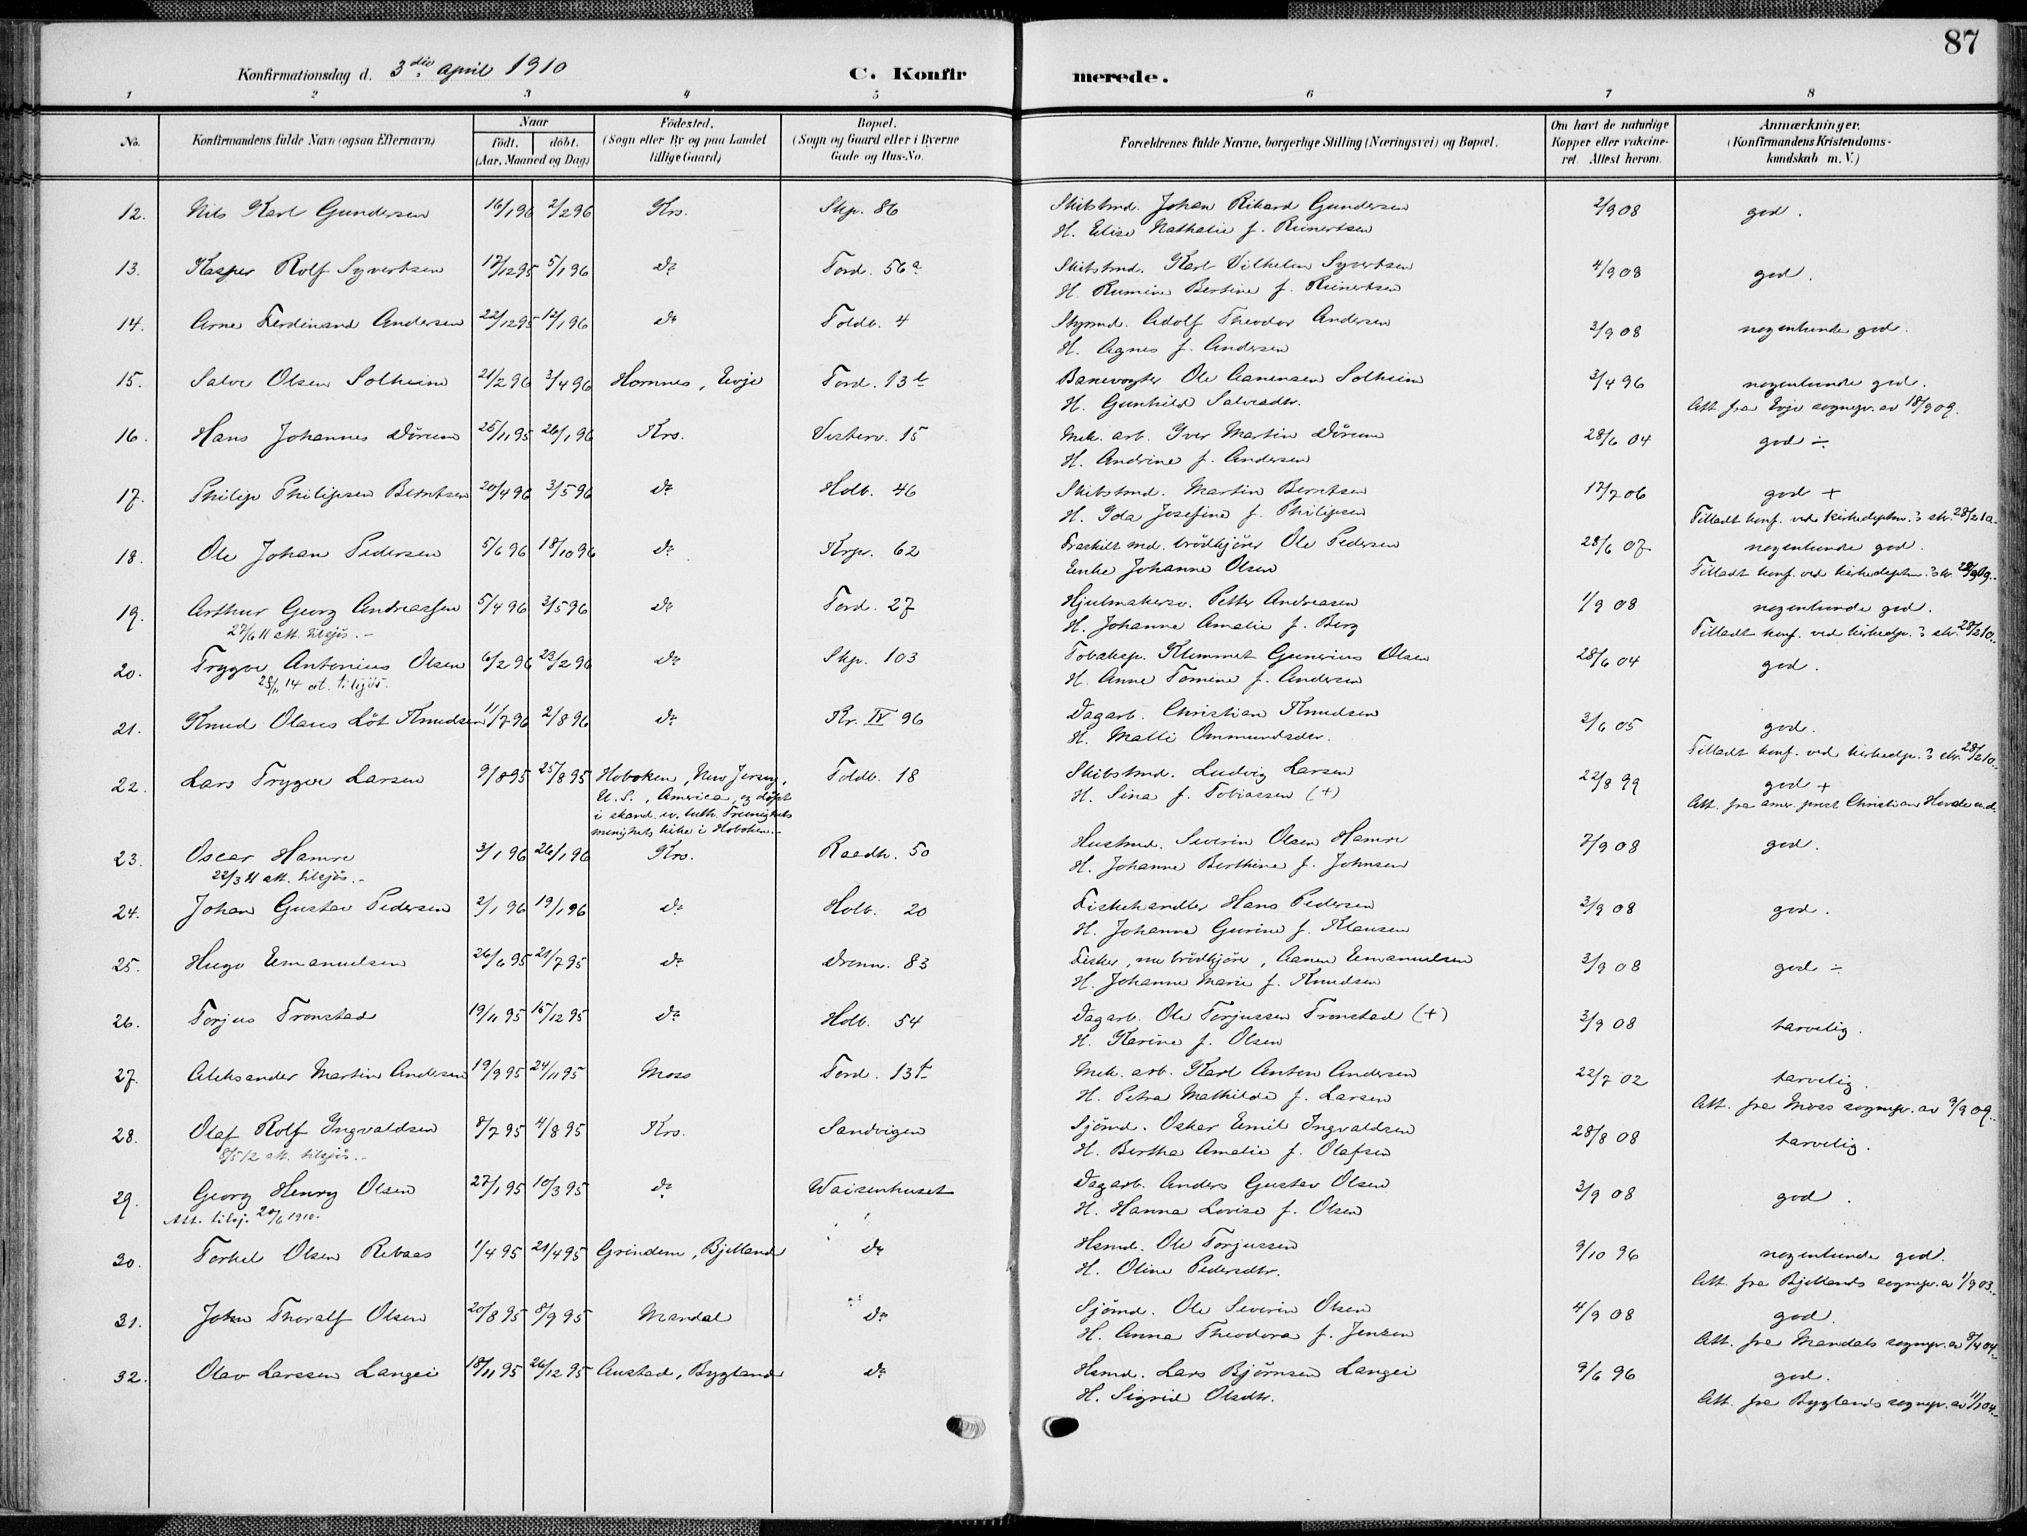 87
Konfirmationsdag d. 3die april 1910
C. Konfirmerede.
1 2 3 4 5 6 7 8
No.
Konfirmandens fulde Navn (ogsaa Efternavn)
Naar
födt. döbt.
(Aar, Maaned og Dag)
Födested.
(Sogn eller By og paa Landet
tillige Gaard)
Bopæl.
(Sogn og Gaard eller i Byerne
Gade og Hus-No.
Forældrenes fulde Navne, borgerlige Stilling (Næringsvei) og Bopæl.
Om havt de naturlige
Kopper eller vakcine-
ret. Attest herom.
Anmærkninger.
(Konfirmandens Kristendoms-
kundskab m. V.)
12. Nils Karl Gundersen 16/1 96 2/2 96 Krs. Skp. 86 Skibstmd. Johan Rikard Gundersen 2/9 08 god.
H. Elise Nathalie f. Reinertsen
13. Kasper Rolf Syvertsen 17/12 95 5/1 96 do Tord. 56a Skibstmd. Karl Vilhelm Syvertsen 4/9 08 god.
H. Rumine Bertine f. Reinertsen
14. Arne Ferdinand Andersen 22/12 95 12/1 96 do Toldb. 4 Styrmd. Adolf Theodor Andersen 3/9 08 nogenlunde god.
H. Agnes f. Andersen
15. Salve Olsen Solheim 21/2 96 3/4 96 Hornnes, Evje Tord. 13b Banevogter Ole Aanensen Solheim 3/4 96 nogenlunde god.
H. Gunhild Salvesdtr. Att. fra Evje sognepr. av 18/9 09.
16. Hans Johannes Dörum 25/11 95 26/1 96 Krs. Vesterv. 15 Mek. arb. Iver Martin Dörum 28/6 04 god ÷
H. Andrine f. Andersen
17. Philip Philipsen Berntsen 20/4 96 3/5 96 do Holb. 46 Skibstmd. Martin Berntsen 17/7 06 god +
H. Ida Josefine f. Philipsen Tilladt konf. ved kirkedeptm.s skr. 28/2 10.
18. Ole Johan Pedersen 5/6 96 18/10 96 do Krpr. 62 Fraskilt md. brödkjörer Ole Pedersen 28/6 07 nogenlunde god.
Enke Johanne Olsen Tilladt konf. ved kirkedeptm.s skr. 28/9 09.
19. Arthur Georg Andreassen 5/4 96 3/5 96 do Tord. 27 Hjulmakersv. Petter Andreasen 1/9 08 nogenlunde god.
27/6 11 att. tilsjös. H. Johanne Amalie f. Berg Tilladt konf. ved kirkedp.s skr. 28/2 10.
20. Trygve Antonius Olsen 6/2 96 23/2 96 do Skp. 103 Tobaksp. Klemmet Gunerius Olsen 28/6 04 god.
28/11 14 at. tilsjös. H. Anne Tomine f. Andersen
21. Knud Olaus Löt Knudsen 11/7 96 2/8 96 do Kr. IV 96 Dagarb. Christian Knudsen 3/6 05 god.
H. Malli Ommundsdtr. Tilladt konf. ved kirkedp.s skr. 28/2 10.
22. Lars Trygve Larsen 9/8 95 25/8 95 Hoboken, New Jersey, Toldb. 18 Skibstmd. Ludvig Larsen 22/8 99 god +
U. S., America, og döpt H. Sina f. Tobiassen (+) Att. fra amer. prest Christian Hovde u.d.
i skand. ev. luth. Treenigheds
menigheds kirke i Hoboken.
23. Oscar Hamre 3/1 96 26/1 96 Krs. Raadh. 50 Hustmd. Severin Olsen Hamre 7/9 08 god.
22/3 11 att. tilsjös. H. Johanne Berthine f. Johnsen
24. Johan Gustav Pedersen 2/1 96 19/1 96 do Holb. 20 Fiskehandler Hans Pedersen 3/9 08 god.
H. Johanne Gurine f. Klausen
25. Hugo Emanuelsen 26/6 95 21/7 95 do Dronn. 83 Fisker, nu brödkjörer, Aanen Emanuelsen 3/9 08 god ÷
H. Johanne Marie f. Knudsen
26. Torjus Tronstad 19/11 95 15/12 95 do Holb. 54 Dagarb. Ole Torjussen Tronstad (+) 3/9 08 tarvelig.
H. Karine f. Olsen
27. Aleksander Martin Andersen 19/9 95 24/11 95 Moss Tord. 13b Mek. arb. Karl Anton Andersen 22/7 02 tarvelig.
H. Petra Mathilde f. Larsen Att. fra Moss sognepr. av 9/9 09.
28. Olaf Rolf Ingvaldsen 8/7 95 4/8 95 Krs. Sandvigen Sjömd. Oskar Emil Ingvaldsen 28/8 08 tarvelig.
8/5 12 att. tilsjös. H. Bertha Amalie f. Olafsen
29. Georg Henry Olsen 27/1 95 10/3 95 do Waisenhuset Dagarb. Anders Gustav Olsen 3/9 08 god.
Att. tilsj. 20/6 1910. H. Hanna Lovise f. Olsen
30. Torkel Olsen Rebaas 1/4 95 21/4 95 Grindem, Bjelland do Hsmd. Ole Torjussen 9/10 96 nogenlunde god.
H. Oline Pedersdtr. Att. fra Bjellands sognepr. av 1/9 03.
31. John Thoralf Olsen 20/8 95 8/9 95 Mandal do Sjömd. Ole Severin Olsen 4/9 08 god.
H. Anna Theodora f. Jensen Att. fra Mandals sognepr. av 8/4 04.
32. Olav Larssen Langei 18/11 95 26/12 95 Austad, Bygland do Hsmd. Lars Bjørnsen Langei 9/6 96 god.
H. Sigrid Olsdtr. Att. fra Byglands sognepr. av 11/1 04.